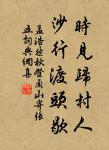 時見歸村人
沙行渡頭歇
孟浩然秋登蘭山寄張
五詞典網喜